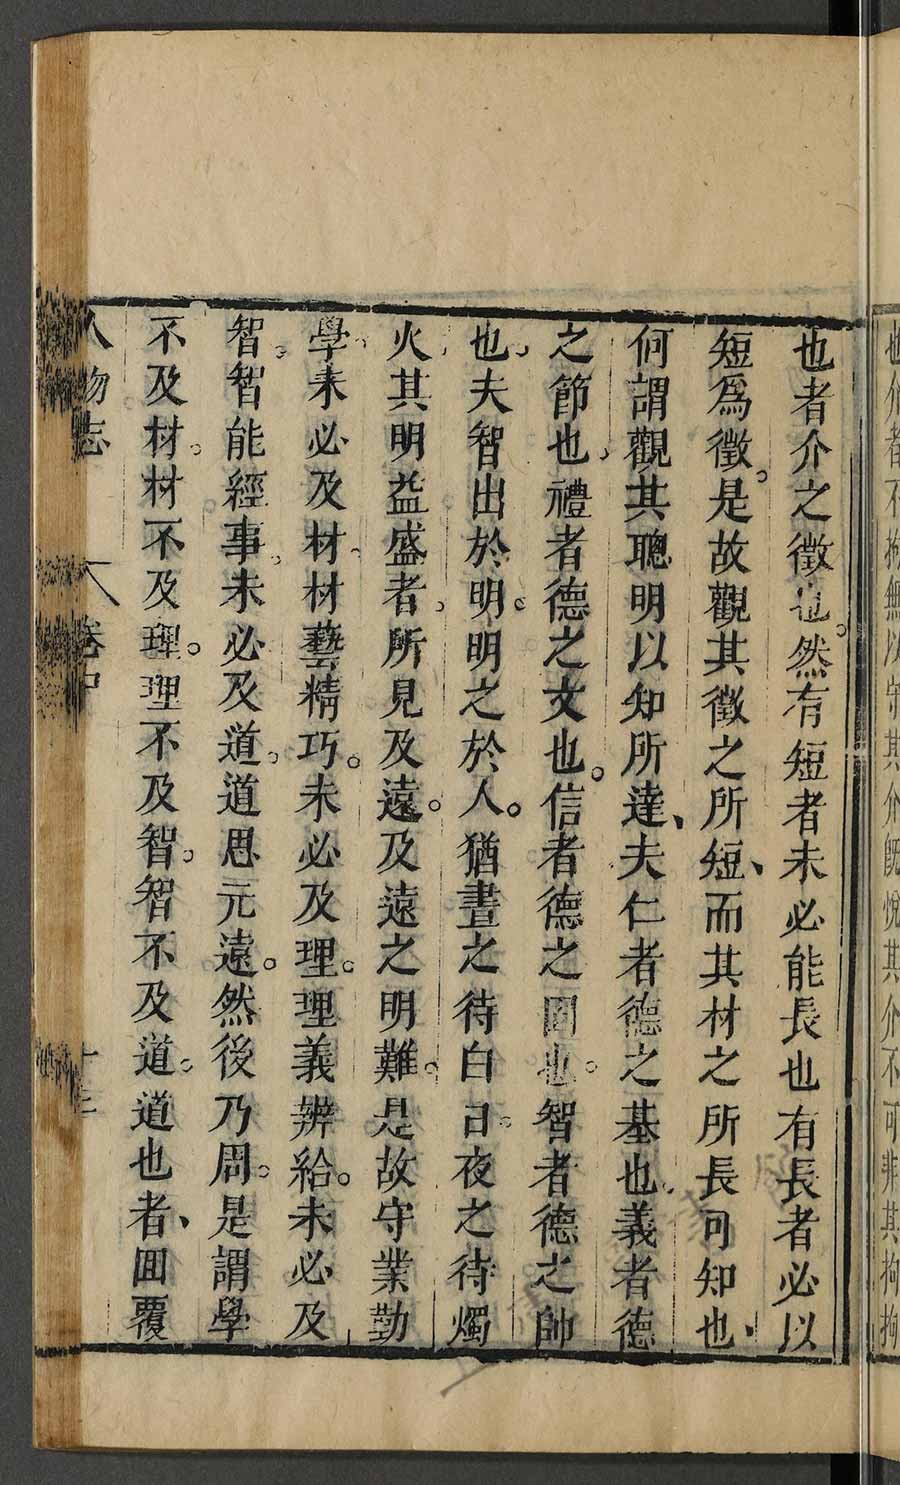 也者介之徵也。然有短者未必能長也有長者必以
短爲徵。是故觀其徵之所短、而其材之所長可知也、
何謂觀其聰明以知所達、夫仁者德之基也、義者德
之節也、禮者德之文也。信者德之固也。智者德之帥
也、夫智出於明。明之於人。猶晝之待白日。夜之待燭
火、其明益盛者、所見及遠。及遠之明難。是故守業勤
學、未必及材、材藝精巧。未必及理。理義辨給。未必及
智。智能經事。未必及道。道思元遠。然後乃周。是謂學
不及材。材不及理。理不及智。智不及道。道也者、囬覆
人物志 卷中
也介者不拘無以守其介既悅其介不可非其拘拘